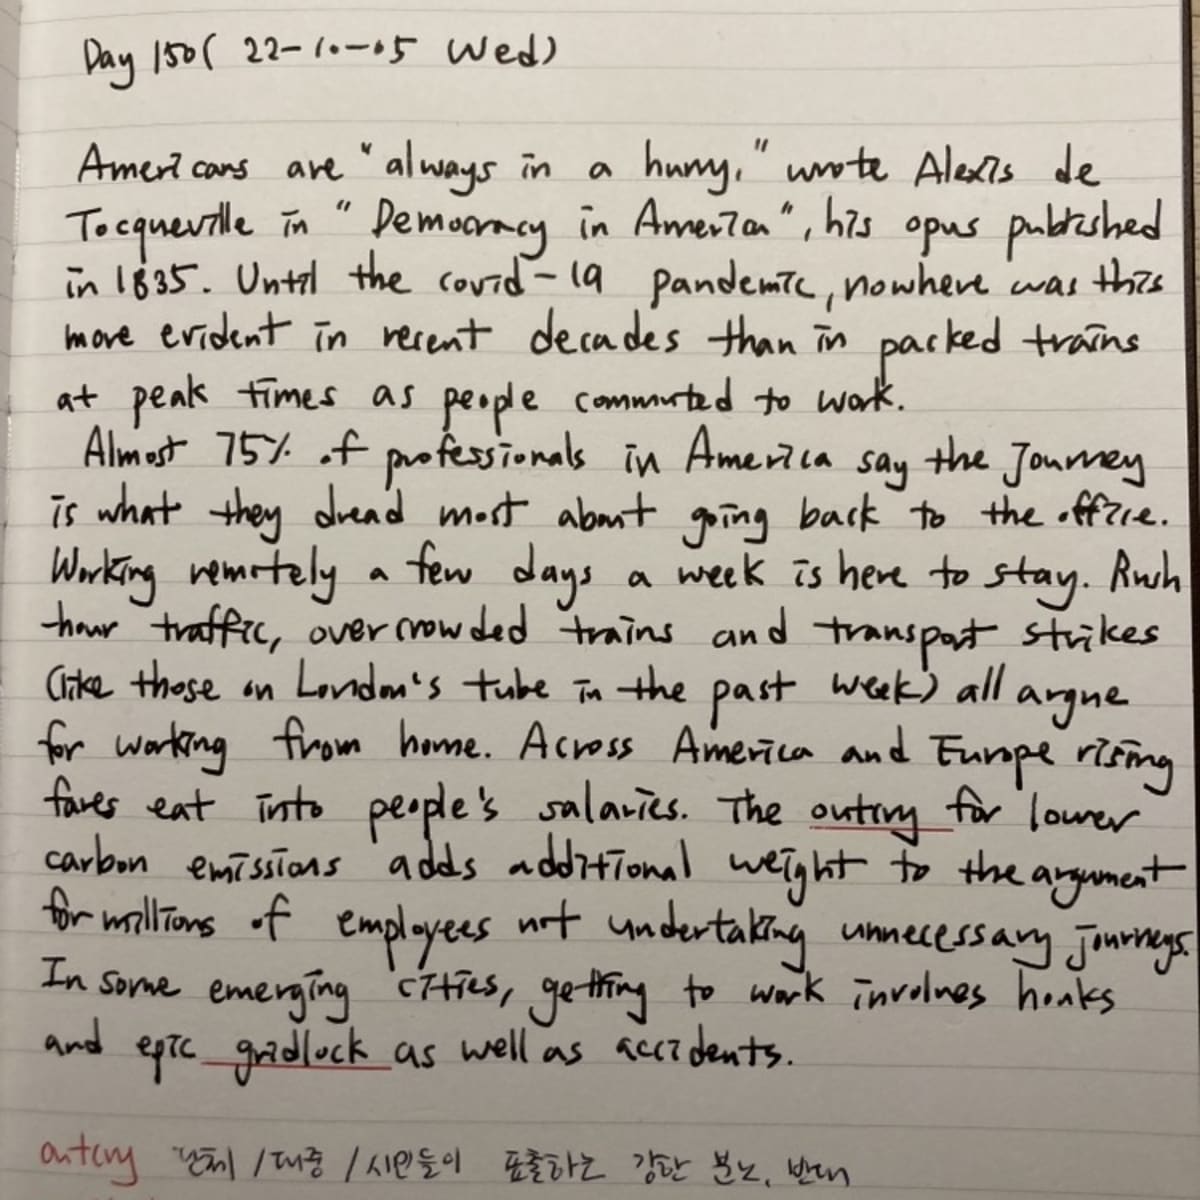 Day 150 ( 22-10-05 Wed)
Americans are "always in a hurry," wrote Alexis de
Tocqueville in "Democracy in America", his opus published
in 1835. Until the covid-19 pandemic, nowhere was this
more evident in recent decades than in packed trains
at peak times as people commuted to work.
Almost 75% of professionals in America say the journey
is what they dread most about going back to the office.
Working remotely a few days a week is here to stay. Rush
hour traffic, overcrowded trains and transport strikes
(like those on London's tube in the past week) all argue
for working from home. Across America and Europe rising
fares eat into people's salaries. The outcry for lower
carbon emissions adds additional weight to the argument
for millions of employees not undertaking unnecessary journeys.
In some emerging cities, getting to work involves honks
and epic gridlock as well as accidents.
outcry 단체 / 대중 / 시민들이 표출하는 강한 분노, 반대